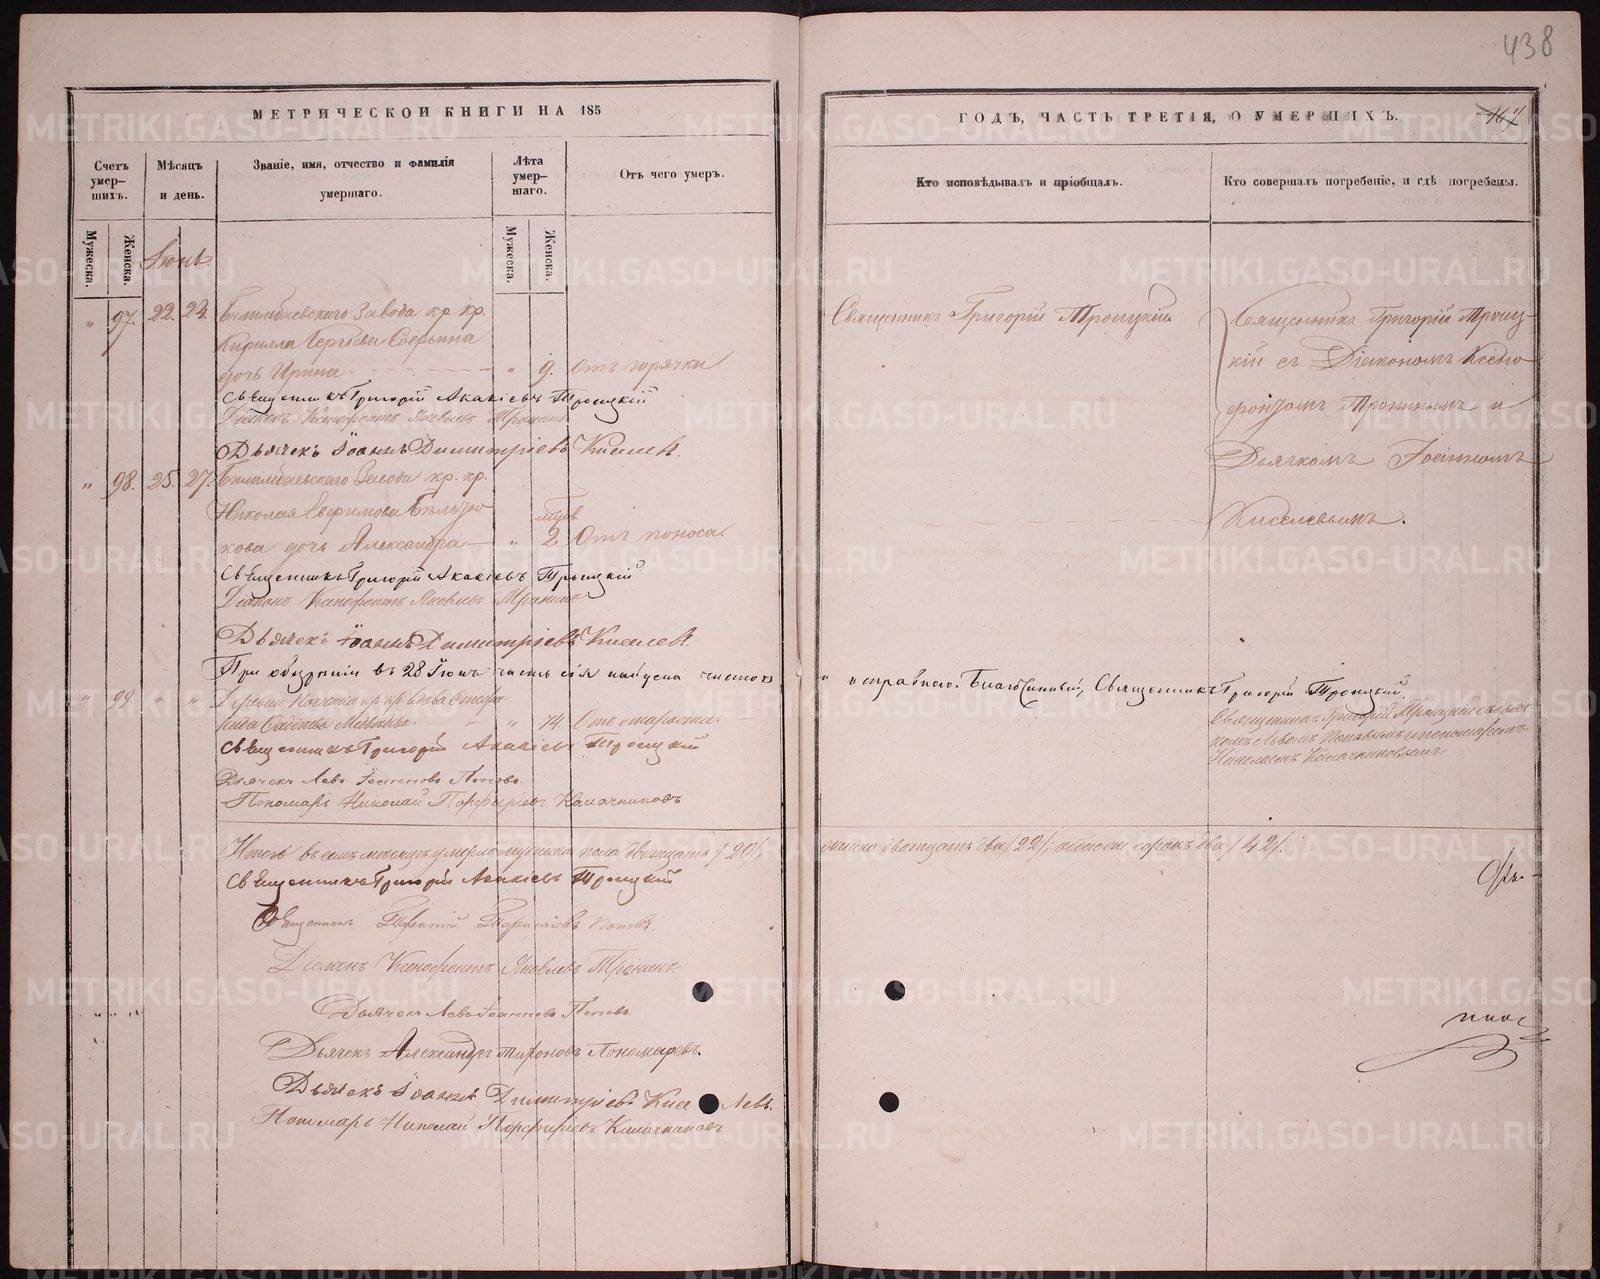 438
МЕТРИЧЕСКОЙ КНИГИ НА 185
ГОДЪ, ЧАСТЬ ТРЕТІЯ, О УМЕРШИХЪ.
167
Счетъ умер-шихъ.
Мѣсяцъ и день.
Званіе, имя, отчество и фамилія умершаго.
Лѣта умер-шаго.
Отъ чего умеръ.
Кто исповѣдывалъ и пріобщалъ.
Кто совершалъ погребеніе, и гдѣ погребены.
Мужеска.
Женска.
Мужеска.
Женска.
Іюнь.
" 97. 22. 24. Билимбаевскаго Завода кр. кр.
Кирилла Сергѣева
дочь Ирина " 9. Отъ горячки
Священникъ Григорій Троицкій
Священникъ Григорій Троиц-
кій съ Діакономъ Ксено-
фонтомъ Трониным и
Дьячкомъ Іоанномъ
Киселевымъ.
Священникъ Григорій Акакіевъ Троицкій
Діаконъ Ксенофонтъ Яковлевъ Тронинъ
Дьячекъ Іоаннъ Димитріевъ Киселевъ.
" 98. 25. 27. Билимбаевскаго Завода кр. кр.
Николая
кова дочь Александра " 2 Отъ поноса
Священникъ Григорій Акакіевъ Троицкій
Діаконъ Ксенофонтъ Яковлевъ Тронинъ
Дьячекъ Іоаннъ Димитріевъ Киселевъ.
При обозрѣніи въ 28 Іюня часть сія найдена чистою и исправною. Благочинный, Священникъ Григорій Троицкій.
" 99. " " Деревни кр. кр. вдова
" 74 Отъ старости.
Священникъ Григорій Троицкій съ дьяч-
комъ Львомъ Поповымъ и пономаремъ
Николаемъ Калачниковымъ.
Священникъ Григорій Акакіевъ Троицкій
Дьячекъ Левъ Іоанновъ Поповъ.
Пономарь Николай Порфиріевъ Калачниковъ
Итого въ семъ мѣсяцѣ умерло мужеска пола двадцать /20/, женска двадцать два /22/; обоего сорокъ два /42/.
Священникъ Григорій Акакіевъ Троицкій
Священникъ Поповъ.
Діаконъ Ксенофонтъ Яковлевъ Тронинъ
Дьячекъ Левъ Іоанновъ Поповъ.
Дьячекъ Александръ Мироновъ Пономаревъ.
Дьячекъ Іоаннъ Димитріевъ Киселевъ.
Пономарь Николай Порфиріевъ Калачниковъ
METRIKI.GASO-URAL.RU